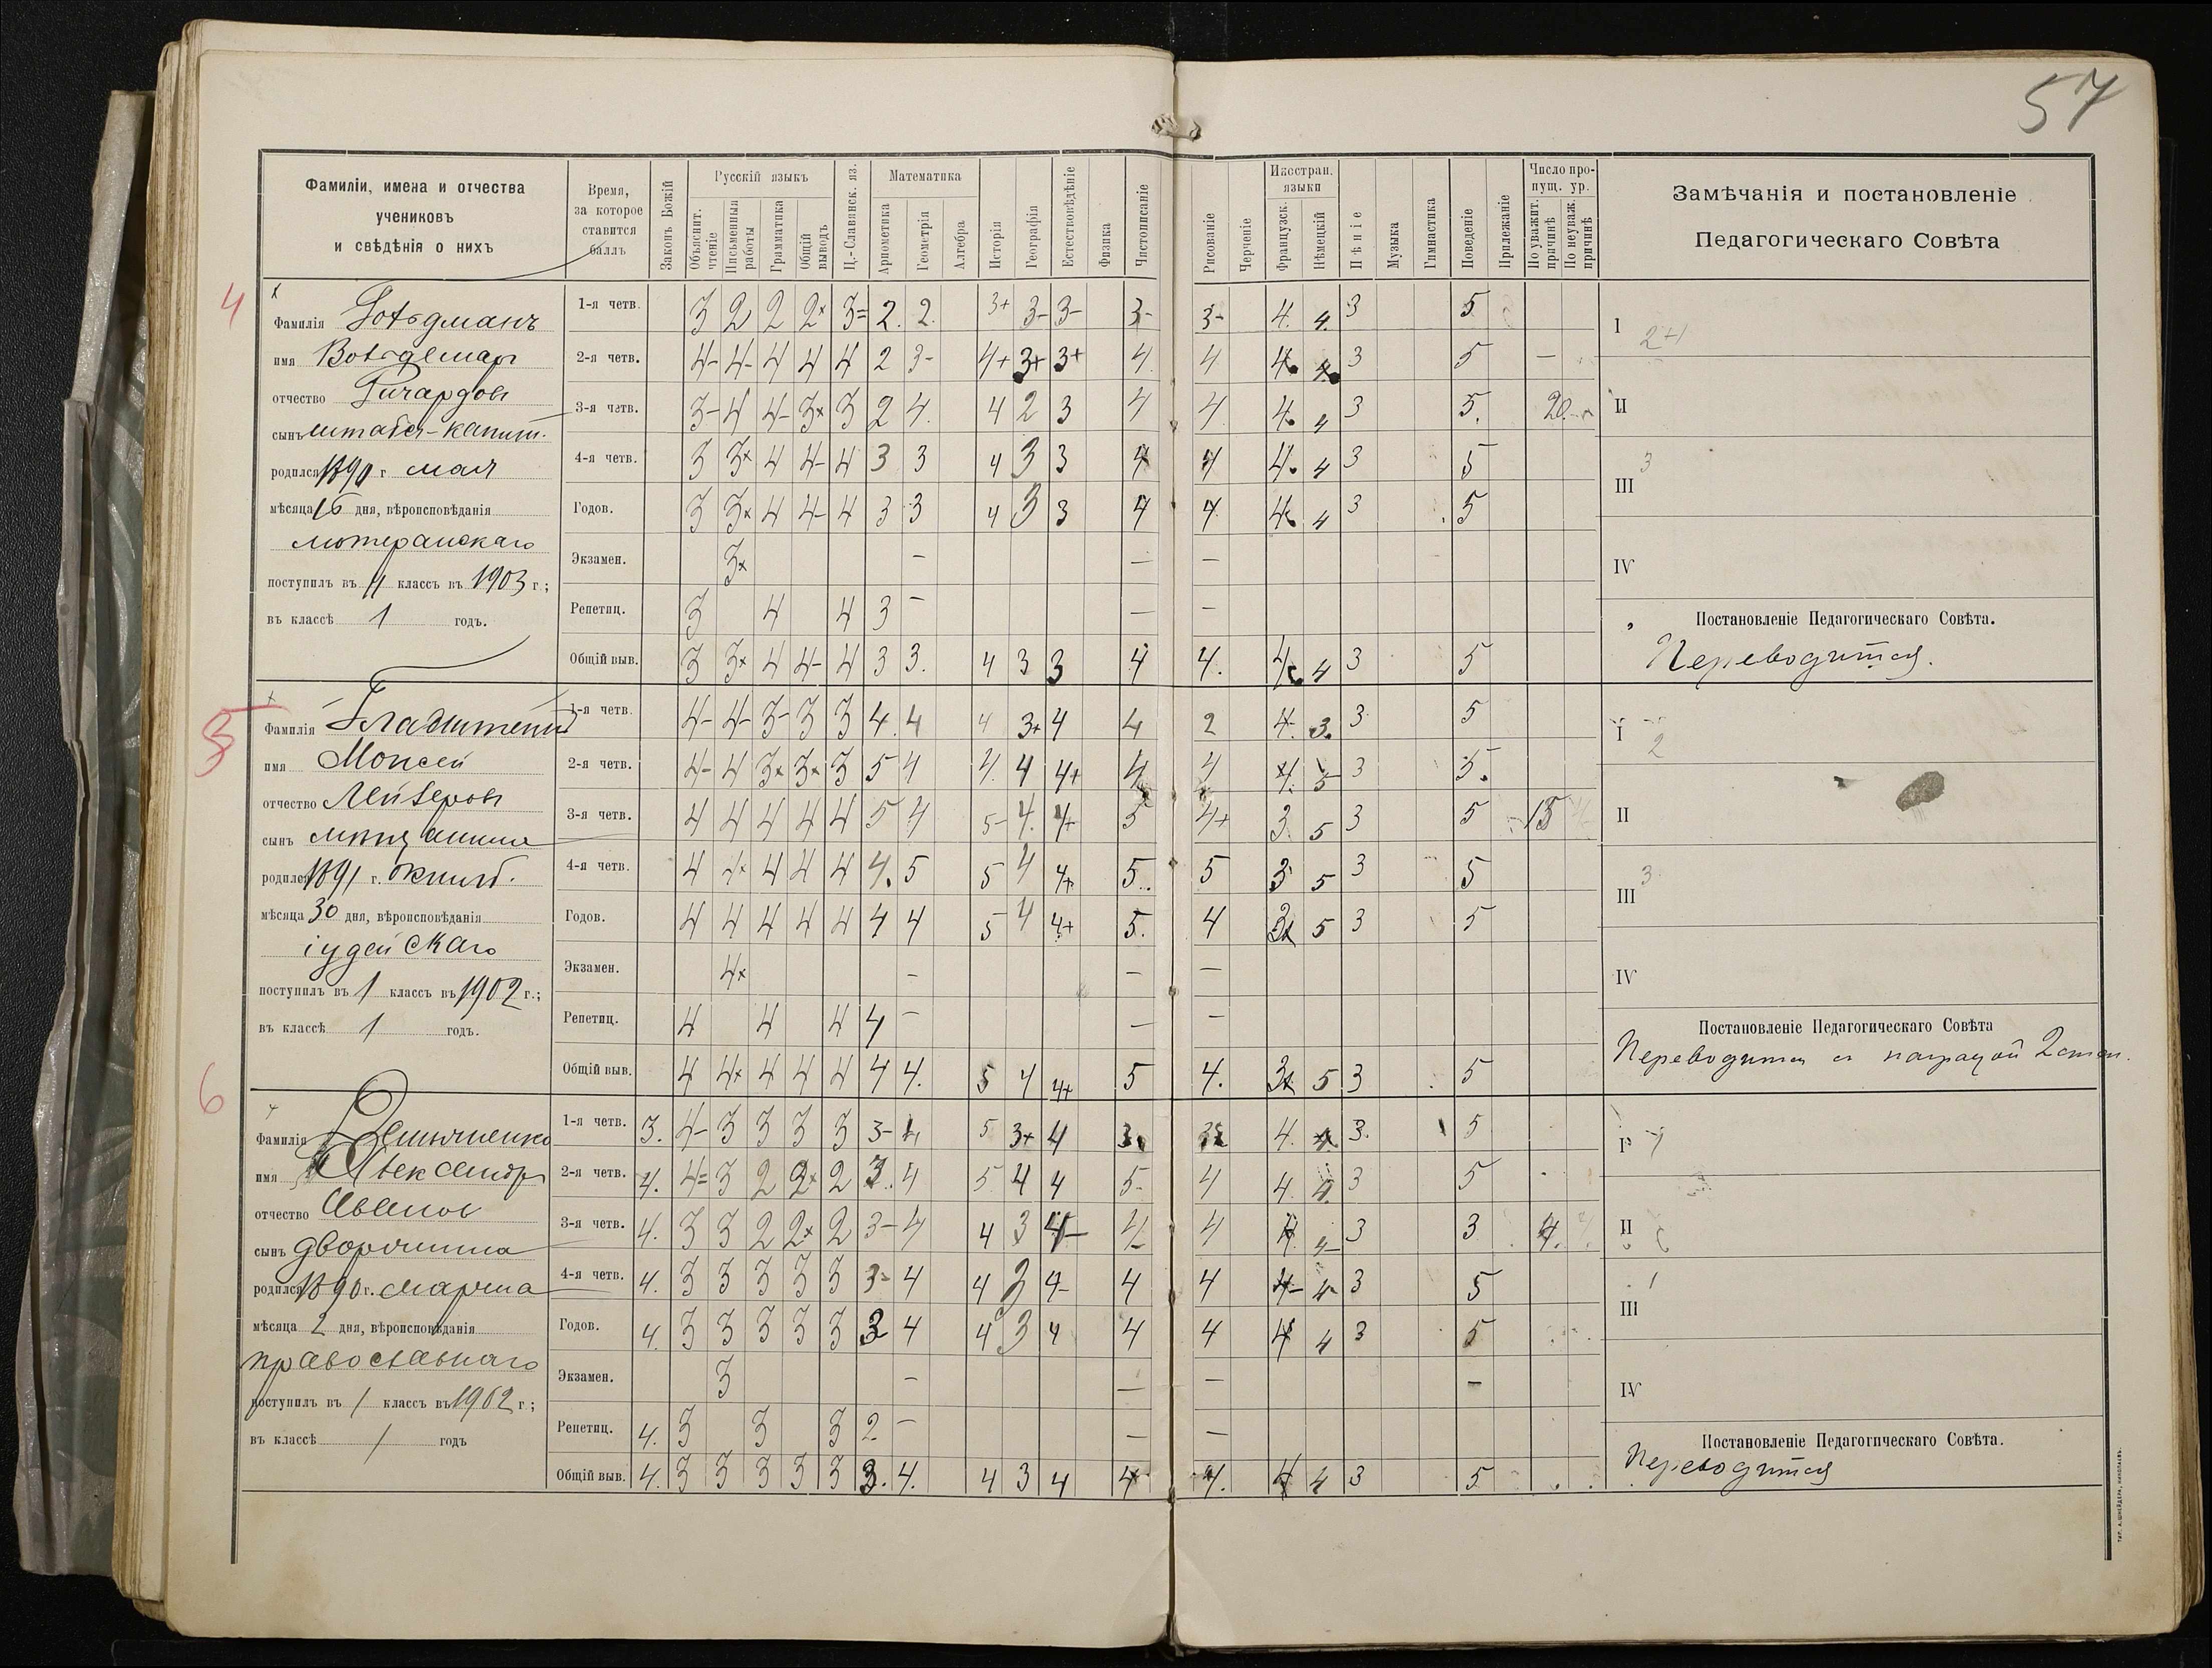 57
Фамиліи, имена и отчества
учениковъ
и свѣдѣнія о нихъ
Время,
за которое
ставится
баллъ
Законъ Божій
Русскій языкъ
Объяснит. чтеніе
Письменныя работы
Грамматика
Общій выводъ
Ц.-Славянск. яз.
Математика
Ариѳметика
Геометрія
Алгебра
Исторія
Географія
Естествовѣдѣніе
Физика
Чистописаніе
Рисованіе
Черченіе
Иностран. языки
Французск.
Нѣмецкій
Пѣніе
Музыка
Гимнастика
Поведеніе
Прилежаніе
Число пропущ. ур.
По уважит. причинѣ
По неуваж. причинѣ
Замѣчанія и постановленіе
Педагогическаго Совѣта
4
Фамилія Гольдманъ
имя Вольдемар
отчество Ричардов
сынъ штабсъ-капит.
родился 1890 г. мая
мѣсяца 16 дня, вѣроисповѣданія
лютеранскаго
поступилъ въ II классъ въ 1903 г.;
въ классѣ 1 годъ.
1-я четв. 3 2 2 2+ 3= 2. 2. 3+ 3- 3- 3- 3- 4. 4. 3 5
2-я четв. 4- 4- 4 4 4 2 3- 4+ 3+ 3+ 4 4 4. 4. 3 5 —
3-я четв. 3- 4 4- 3+ 3 2 4. 4 2 3 4 4 4. 4 3 5. 20
4-я четв. 3 3+ 4 4- 4 3 3 4 3 3 4 4 4. 4 3 5
Годов. 3 3+ 4 4- 4 3 3 4 3 3 4 4 4 4 3 5
Экзамен. 3+ — — —
Репетиц. 3 4 4 3 — — —
Общій выв. 3 3+ 4 4- 4 3 3. 4 3 3 4 4. 4 4 3 5
I 2+
II
III 3
IV
Постановленіе Педагогическаго Совѣта.
Переводится.
5
Фамилія
имя Моисей
отчество Лейзеров
сынъ мѣщанина
родился 1891 г. октяб.
мѣсяца 30 дня, вѣроисповѣданія
іудейскаго
поступилъ въ 1 классъ въ 1902 г.;
въ классѣ 1 годъ.
1-я четв. 4- 4- 3- 3 3 4. 4 4 3+ 4 4 2 4. 3. 3 5
2-я четв. 4- 4 3+ 3+ 3 5 4 4. 4 4+ 4 4 4. 5- 3 5.
3-я четв. 4 4 4 4 4 5 4 5- 4. 4+ 5 4+ 3. 5 3 5 15
4-я четв. 4 4+ 4 4 4 4. 5 5 4 4+ 5. 5 3 5 3 5
Годов. 4 4 4 4 4 4 4 5 4 4+ 5. 4 3+ 5 3 5
Экзамен. 4+ — — —
Репетиц. 4 4 4 4 — — —
Общій выв. 4 4+ 4 4 4 4 4. 5 4 4+ 5 4. 3+ 5 3 5
I 2
II
III 3
IV
Постановленіе Педагогическаго Совѣта
Переводится съ наградой 2 степ.
6
Фамилія Демьяненко
имя Александр
отчество Иванов
сынъ дворянина
родился 1890 г. марта
мѣсяца 2 дня, вѣроисповѣданія
православнаго
поступилъ въ 1 классъ въ 1902 г.;
въ классѣ 1 годъ
1-я четв. 3. 4- 3 3 3 3 3- 4 5 3+ 4 3. 4. 4. 3. 5
2-я четв. 4. 4= 3 2 2+ 2 3. 4 5 4 4 5- 4 4. 4. 3 5
3-я четв. 4. 3 3 2 2+ 2 3- 4 4 3 4- 4 4 4. 4- 3 3 4.
4-я четв. 4. 3 3 3 3 3 3- 4 4 3 4- 4 4 4- 4- 3 5
Годов. 4. 3 3 3 3 3 3 4 4 3 4 4 4 4 4 3 5
Экзамен. 3 — — — —
Репетиц. 4. 3 3 3 2 — — —
Общій выв. 4. 3 3 3 3 3 3. 4. 4 3 4 4 4. 4 4 3 5
I
II
III
IV
Постановленіе Педагогическаго Совѣта.
Переводится
ТИП. А. ШНЕЙДЕРА, НИКОЛАЕВЪ.